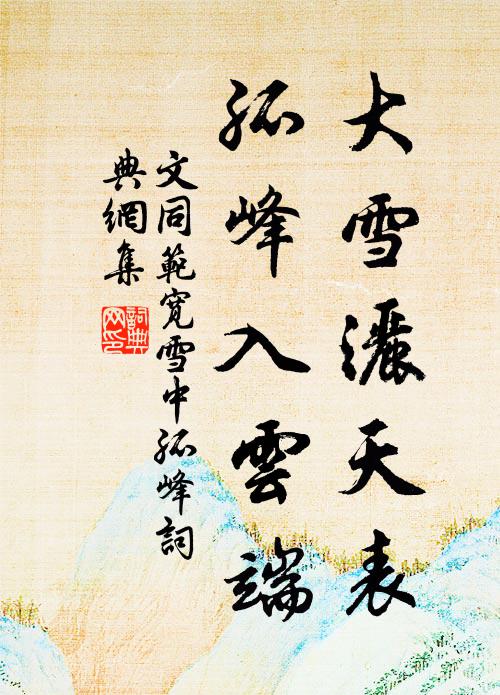 大雪灑天表
孤峰入雲端
文同範寬雪中孤峰詞
典網集
詞典
网印